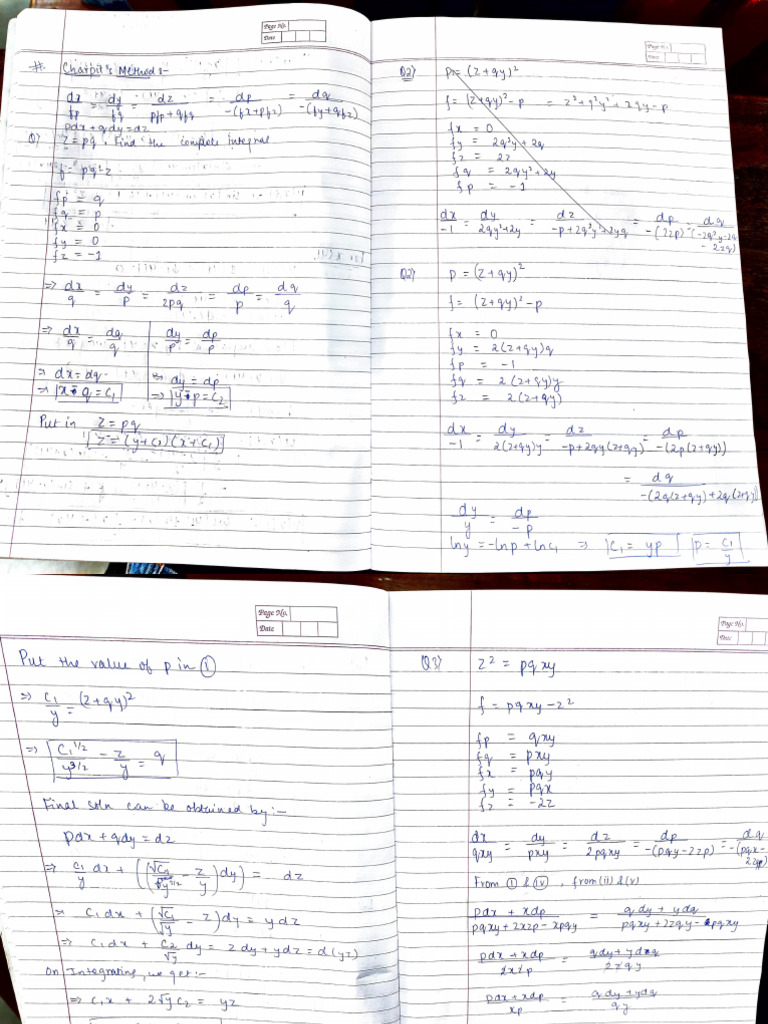 Page No.
Date
#. Charpit's Method:-
dx/fp = dy/fq = dz/(pfp + qfq) = dp/-(fx+pfz) = dq/-(fy+qfz)
pdx + qdy = dz
Q) z = pq. Find the complete integral
f = pq - z
fp = q
fq = p
fx = 0
fy = 0
fz = -1
=> dx/q = dy/p = dz/2pq = dp/p = dq/q
=> dx/q = dq/q | dy/p = dp/p
=> dx = dq | => dy = dp
=> x - q = c1 | => y - p = c2
Put in z = pq
z = (y+c2)(x+c1)
Page No.
Date
Q2) p = (z + qy)²
f = (z+qy)² - p = z² + q²y² + 2qy - p
fx = 0
fy = 2q²y + 2q
fz = 2z
fq = 2qy² + 2y
fp = -1
dx/-1 = dy/(2qy²+2y) = dz/(-p+2q²y²+2yq) = dp/-(2zp) = dq/-(-2q²y-2q-2zq)
Q2) p = (z+qy)²
f = (z+qy)² - p
fx = 0
fy = 2(z+qy)q
fp = -1
fq = 2(z+qy)y
fz = 2(z+qy)
dx/-1 = dy/2(z+qy)y = dz/(-p+2qy(z+qy)) = dp/-(2p(z+qy))
= dq/-(2q(z+qy)+2q(z+qy))
dy/y = dp/-p
ln y = -ln p + ln c1 => c1 = yp p = c1/y
Page No.
Date
Put the value of p in ①
=> c1/y = (z+qy)²
=> c1^1/2/y^3/2 - z/y = q
Final soln can be obtained by:-
pdx + qdy = dz
=> c1/y dx + ((√c1/y^3/2 - z/y)dy) = dz
=> c1dx + (√c1/√y - z)dy = ydz
=> c1dx + c2/√y dy = zdy + ydz = d(yz)
On Integrating, we get:-
=> c1x + 2√y c2 = yz
Page No.
Date
Q3) z² = pqxy
f = pqxy - z²
fp = qxy
fq = pxy
fx = pqy
fy = pqx
fz = -2z
dx/qxy = dy/pxy = dz/2pqxy = dp/-(pqy-2zp) = dq/-(pqx-2zq)
From ① & ④, from (ii) & (v)
(pdx + xdp)/(pqxy+2xzp-xpqy) = (qdy + ydq)/(pqxy+2zqy-pqxy)
(pdx + xdp)/2xzp = (qdy + ydq)/2zqy
(pdx + xdp)/xp = (qdy + ydq)/qy